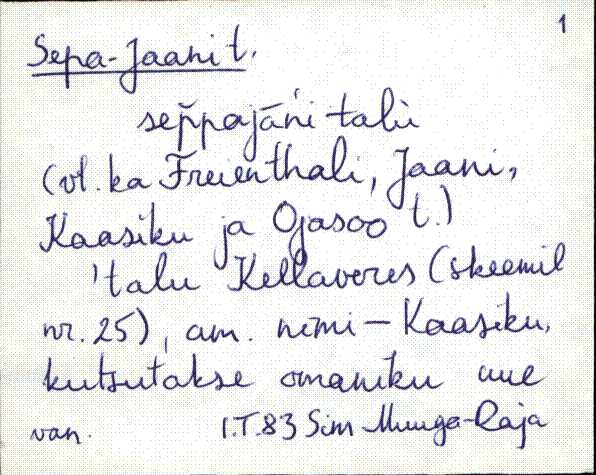 1
Sepa-Jaani t.
seppajāńi talù
(vt. ka Freienthali, Jaani,
Kaasiku ja Ojasoo t.)
'talu Kellaveres (skeemil
nr. 25), am. nimi — Kaasiku,
kutsutakse omaniku uue
van. I.T.83 Sim Muuga-Raja